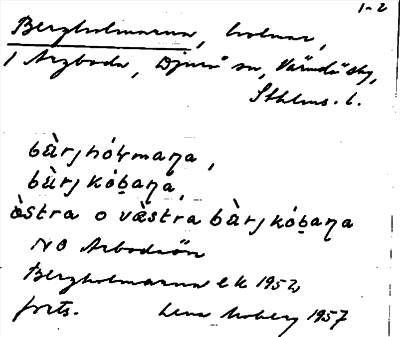 1-2
Bergholmarna, holmar,
/ Arzboda, Djurö sn, Värmdö skg,
Sthlms l.
bàrjhólmaŋa,
bàrjkóbaŋa,
òstra o vàstra bàrjkóbaŋa
NO Arbodaön
Bergholmarna ek 1952
forts. Lena Moberg 1957